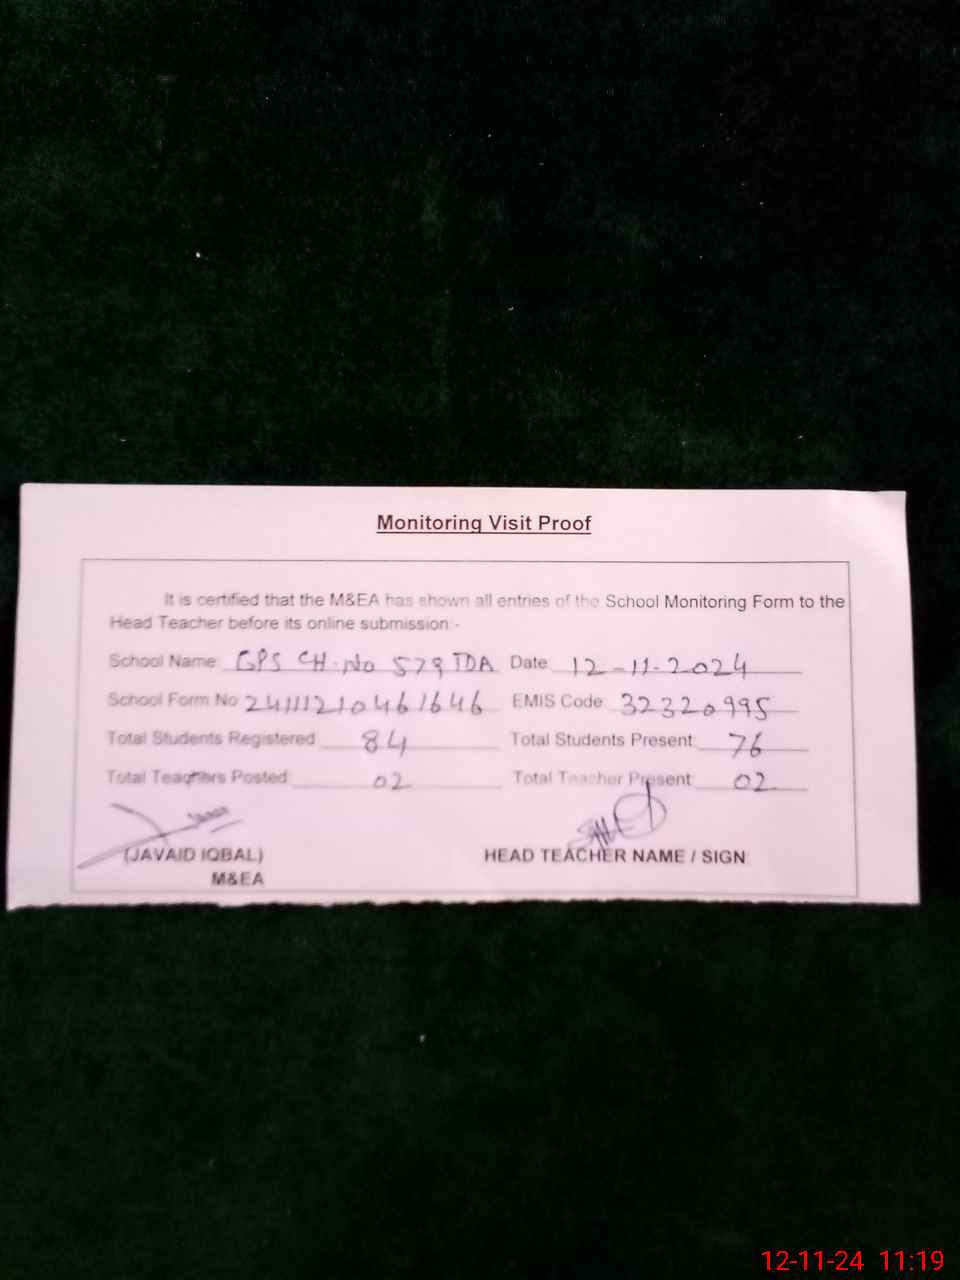 Monitoring Visit Proof
It is certified that the M&EA has shown all entries of the School Monitoring Form to the
Head Teacher before its online submission:-
School Name: GPS CH.No 579 TDA Date: 12-11-2024
School Form No: 24111210461646 EMIS Code: 32320995
Total Students Registered: 84 Total Students Present: 76
Total Teachers Posted: 02 Total Teacher Present: 02
(JAVAID IQBAL) HEAD TEACHER NAME / SIGN
M&EA
12-11-24 11:19